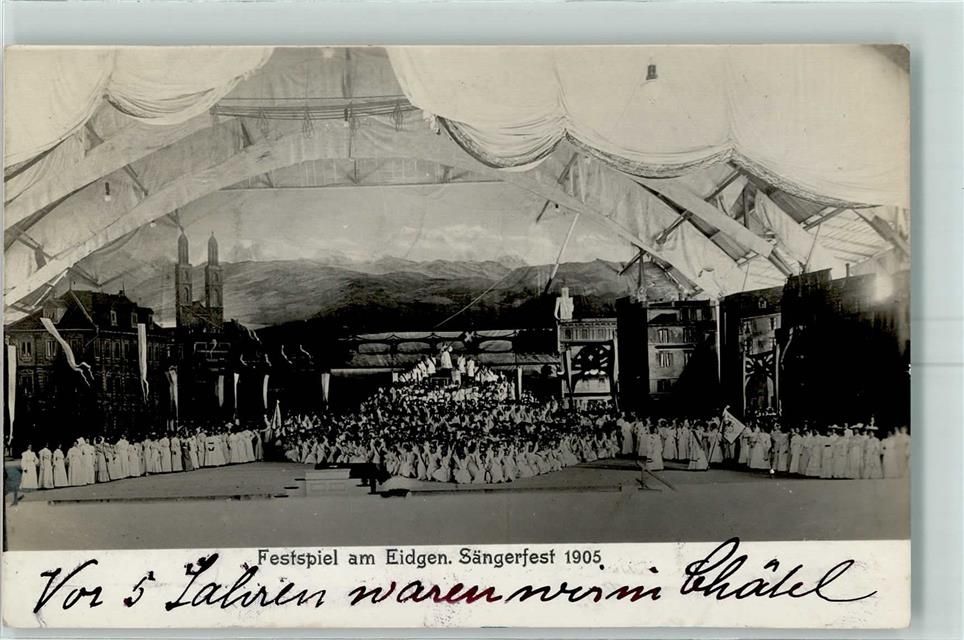 Festspiel am Eidgen. Sängerfest 1905
Vor 5 Jahren waren wir in Châtel